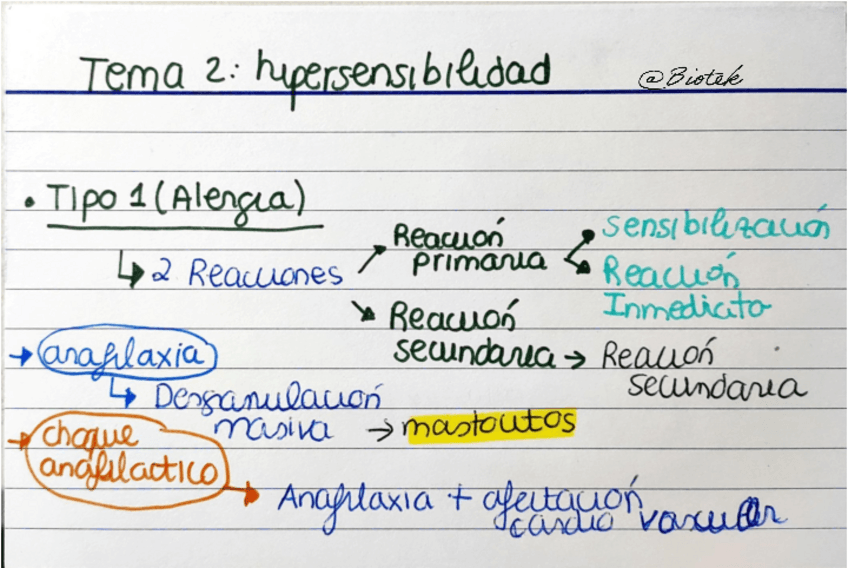 Tema 2: hipersensibilidad @Biotek
• Tipo 1 (Alergia)
2 Reacciones
Reacción
primaria
Sensibilización
Reacción
Inmediata
Reacción
secundaria → Reacción
secundaria
→ anafilaxia
Desgranulación
masiva → mastocitos
→ choque
anafilactico
→ Anafilaxia + afectación
cardio vascular